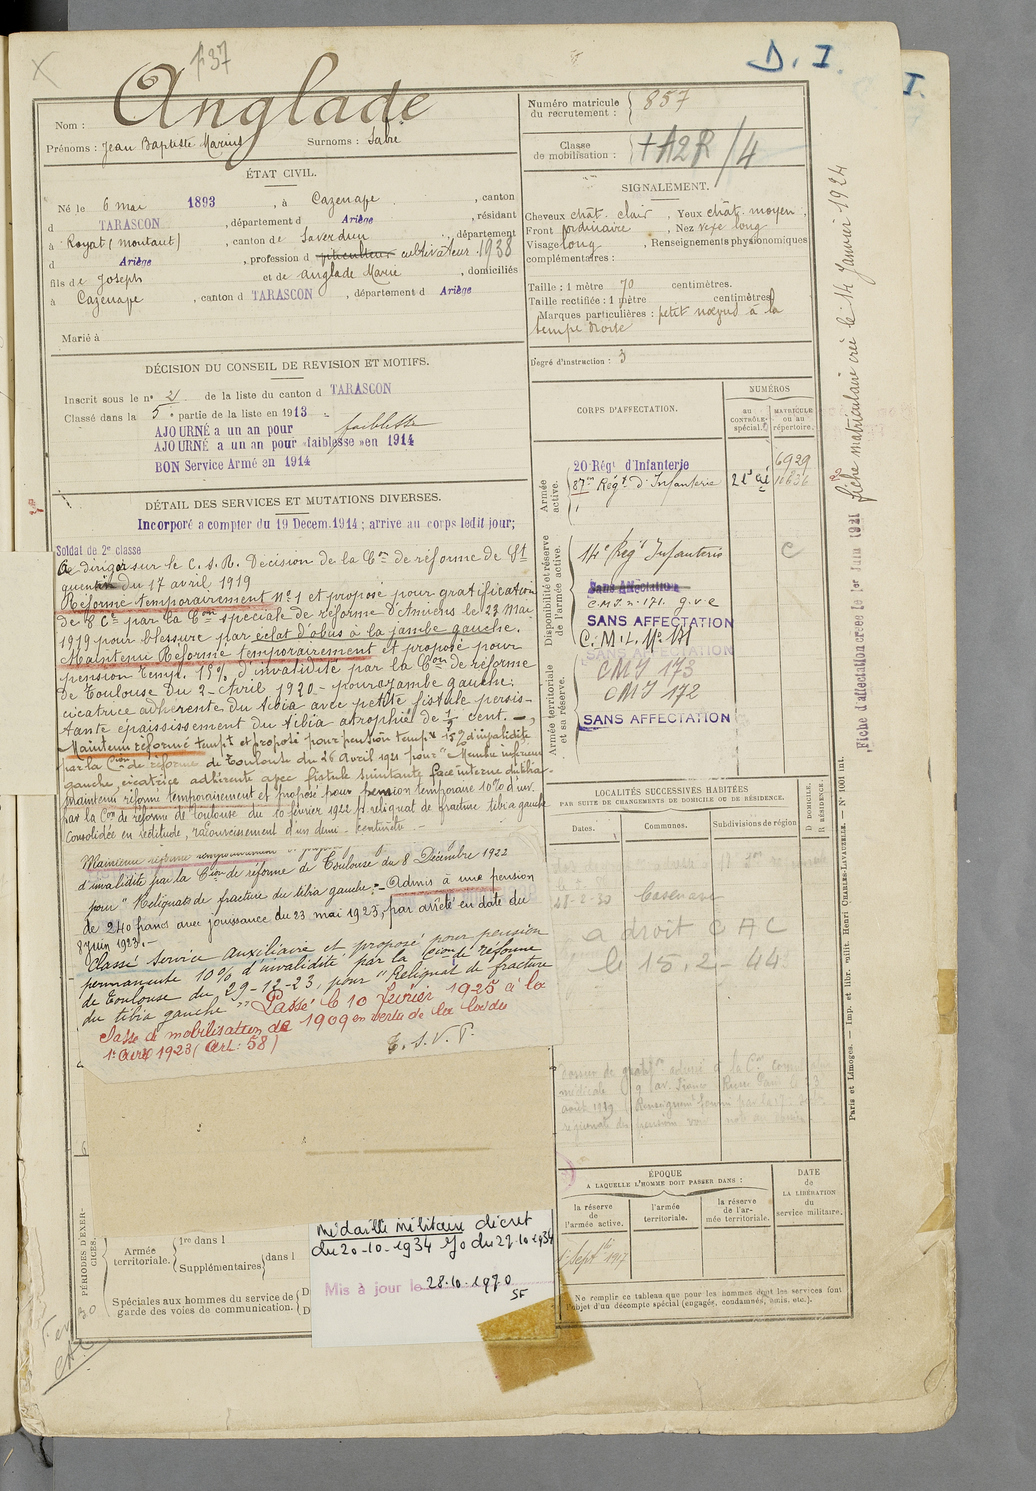 137
D. I.
I.
Nom : Anglade
Prénoms : Jean Baptiste Marius Surnoms : Sabé
Numéro matricule du recrutement : 857
Classe de mobilisation : +A2R/4
ÉTAT CIVIL.
Né le 6 mai 1893, à Cazenave, canton
d TARASCON, département d Ariège, résidant
à Royat (Montaut), canton de Saverdun, département
d Ariège, profession d cultivateur 1938
fils de Joseph et de Anglade Marie, domiciliés
à Cazenave, canton d TARASCON, département d Ariège
Marié à
SIGNALEMENT.
Cheveux chât. clair, Yeux chât. moyen,
Front ordinaire, Nez vexe long
Visage long, Renseignements physionomiques
complémentaires :
Taille : 1 mètre 70 centimètres.
Taille rectifiée : 1 mètre centimètres.
Marques particulières : petit nœvus à la
tempe droite
Degré d'instruction : 3
DÉCISION DU CONSEIL DE REVISION ET MOTIFS.
Inscrit sous le n° 2 de la liste du canton d TARASCON
Classé dans la 5e partie de la liste en 1913
AJOURNÉ a un an pour faiblesse
AJOURNÉ a un an pour «faiblesse» en 1914
BON Service Armé en 1914
DÉTAIL DES SERVICES ET MUTATIONS DIVERSES.
Incorporé a compter du 19 Decem.1914 ; arrive au corps ledit jour;
Soldat de 2e classe
A diriger sur le C. S. R. Décision de la Con de réforme de St
quentin du 17 avril 1919
Réformé temporairement n° 1 et proposé pour gratification
de 8 Cie par la Con spéciale de réforme d'Amiens le 23 Mai
1919 pour blessure par éclat d'obus à la jambe gauche.
Maintenu Réformé temporairement et proposé pour
pension temp. 15% d'invalidité par la Con de réforme
de Toulouse du 2 Avril 1920 pour jambe gauche:
cicatrice adhérente du tibia avec petite fistule persis-
tante épaississement du tibia atrophié de 1/2 cent.
Maintenu réformé tempt et proposé pour pension tempre 15% d'invalidité
par la Con de réforme de Toulouse du 26 Avril 1921 pour "Membre inférieur
gauche, cicatrice adhérente avec fistule suintante face interne du tibia
Maintenu réformé temporairement et proposé pour pension temporaire 10% d'inv.
par la Con de réforme de Toulouse du 10 février 1922 pr reliquat de fracture tibia gauche
consolidée en rectitude, raccourcissement d'un demi-centimètre
Maintenu réformé temporairement et proposé
d'invalidité par la Cion de réforme de Toulouse du 8 Décembre 1922
pour "Reliquats de fracture du tibia gauche". Admis à une pension
de 240 francs avec jouissance du 23 mai 1923, par arrêté en date du
8 Juin 1923.
Classé service auxiliaire et proposé pour pension
permanente 10% d'invalidité par la Cion de réforme
de Toulouse du 29-12-23, pour "Reliquat de fracture
du tibia gauche" Passé le 10 février 1925 à la
classe de mobilisation de 1909 en vertu de la loi du
1er Avril 1923 (Art: 58)
T. S. V. P.
CORPS D'AFFECTATION.
NUMÉROS
au CONTRÔLE spécial.
MATRICULE ou au répertoire.
Armée active.
20 Régt d'Infanterie 6929
87me Régt d'Infanterie 21e Cie 16836
Disponibilité et réserve de l'armée active.
14e Régt Infanterie C
Sans Affectation
C.M.I. n. 171. g.v.c
SANS AFFECTATION
C. M. I. N° 171
SANS AFFECTATION
Armée territoriale et sa réserve.
CMI 173
CMI 172
SANS AFFECTATION
LOCALITÉS SUCCESSIVES HABITÉES
PAR SUITE DE CHANGEMENTS DE DOMICILE OU DE RÉSIDENCE.
Dates. Communes. Subdivisions de région
D DOMICILE.
R RÉSIDENCE.
28-2-30 Cazenave
a droit CAC
le 15.2-44
ÉPOQUE
A LAQUELLE L'HOMME DOIT PASSER DANS :
la réserve de l'armée active.
l'armée territoriale.
la réserve de l'armée territoriale.
DATE de LA LIBÉRATION du service militaire.
1er Septbre 1917
Ne remplir ce tableau que pour les hommes dont les services font
l'objet d'un décompte spécial (engagés, condamnés, omis, etc.).
PÉRIODES D'EXERCICES.
Armée territoriale.
1re dans l
Supplémentaires
dans l
Spéciales aux hommes du service de
garde des voies de communication.
D
D
Médaille militaire décret
du 20-10-1934 JO du 27-10-1934
Mis à jour le 28.10.1970
SF
Fiche d'affectation créée le 1er Juin 1921
fiche matriculaire créée le 14 Janvier 1924
Paris et Limoges. — Imp. et libr. milit. Henri CHARLES-LAVAUZELLE. — N° 1001 int.